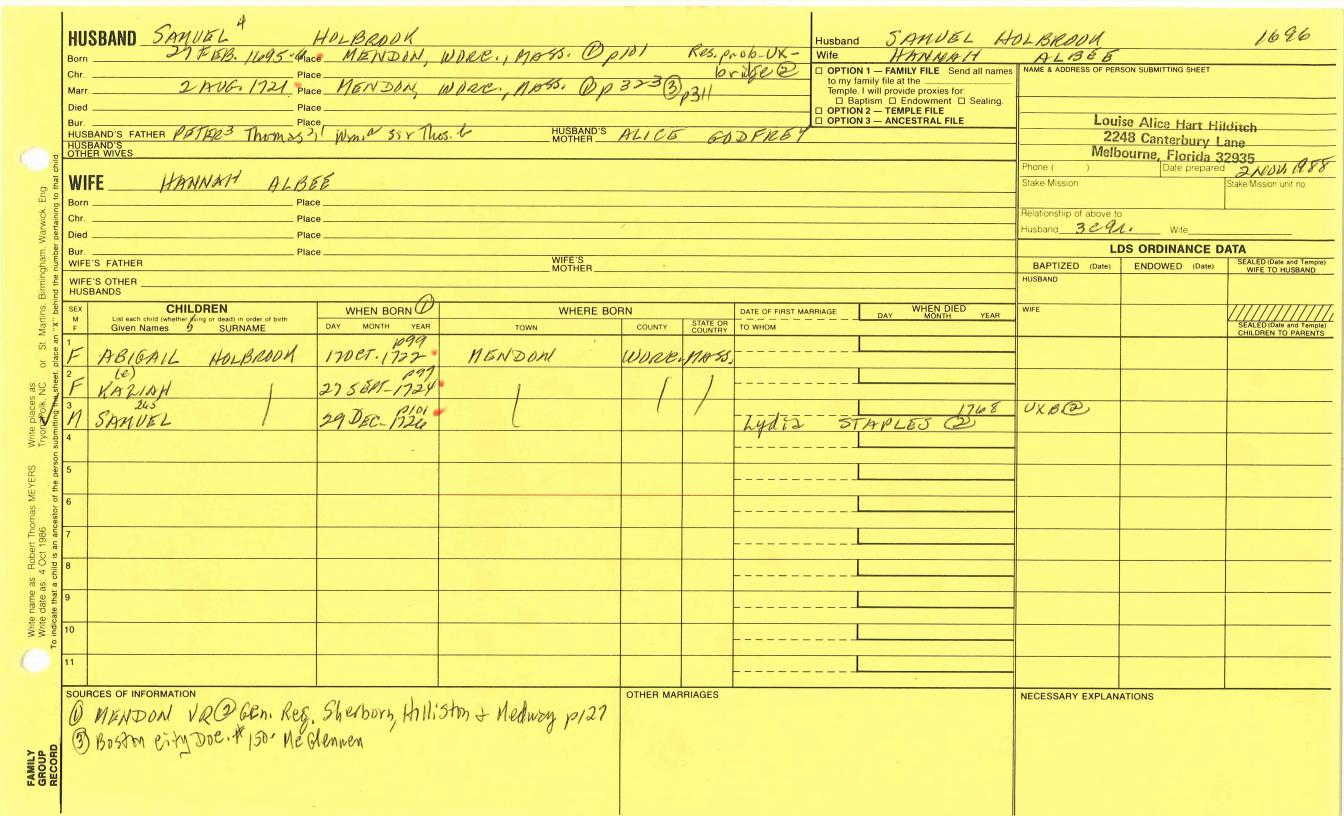 HUSBAND SAMUEL 4 HOLBROOK
Born 27 FEB. 1695-6 Place MENDON, WORC., MASS. ① p101 Res. prob. UX-
Chr. Place bridge ②
Marr 2 AUG. 1721 Place MENDON, WORC, MASS. ① p323 ③ p311
Died Place
Bur. Place
HUSBAND'S FATHER PETER3 Thomas2, HUSBAND'S MOTHER ALICE GODFREY
HUSBAND'S OTHER WIVES
WIFE HANNAH ALBEE
Born Place
Chr. Place
Died Place
Bur. Place
WIFE'S FATHER WIFE'S MOTHER
WIFE'S OTHER HUSBANDS
Husband SAMUEL HOLBROOK 1696
Wife HANNAH ALBEE
☐ OPTION 1 — FAMILY FILE Send all names
to my family file at the
Temple. I will provide proxies for
☐ Baptism ☐ Endowment ☐ Sealing.
☐ OPTION 2 — TEMPLE FILE
☐ OPTION 3 — ANCESTRAL FILE
NAME & ADDRESS OF PERSON SUBMITTING SHEET
Louise Alice Hart Hilditch
2248 Canterbury Lane
Melbourne, Florida 32935
Phone ( ) Date prepared 2 NOV. 1988
Stake Mission Stake Mission unit no.
Relationship of above to
Husband 3cgr. Wife
LDS ORDINANCE DATA
BAPTIZED (Date) ENDOWED (Date) SEALED (Date and Temple) WIFE TO HUSBAND
HUSBAND
WIFE
SEALED (Date and Temple) CHILDREN TO PARENTS
SEX M F
CHILDREN
List each child (whether living or dead) in order of birth
Given Names SURNAME
WHEN BORN ①
DAY MONTH YEAR
WHERE BORN
TOWN COUNTY STATE OR COUNTRY
DATE OF FIRST MARRIAGE
TO WHOM
WHEN DIED
DAY MONTH YEAR
1 p99
F ABIGAIL HOLBROOK 17 OCT. 1722 MENDON WORC. MASS.
2 (e) p97
F KAZIAH 27 SEPT. 1724
3 p101 1768 UXB ②
M SAMUEL 29 DEC. 1726 Lydia STAPLES ②
4
5
6
7
8
9
10
11
SOURCES OF INFORMATION
① MENDON VR ② Gen. Reg. Sherborn, Holliston & Medway p127
③ Boston City Doc. # 150. McGlennen
OTHER MARRIAGES
NECESSARY EXPLANATIONS
FAMILY GROUP RECORD
Write name as: Robert Thomas MEYERS Write places as: Tryon, Polk, NC or St. Martins, Birmingham, Warwick, Eng
Write date as: 4 Oct 1986
To indicate that a child is an ancestor of the person submitting the sheet, place an "X" behind the number pertaining to that child